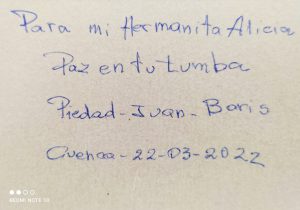 Para mi Hermanita Alicia
Paz en tu tumba
Piedad-Juan-Boris
Cuenca-22-03-2022
REDMI NOTE 10